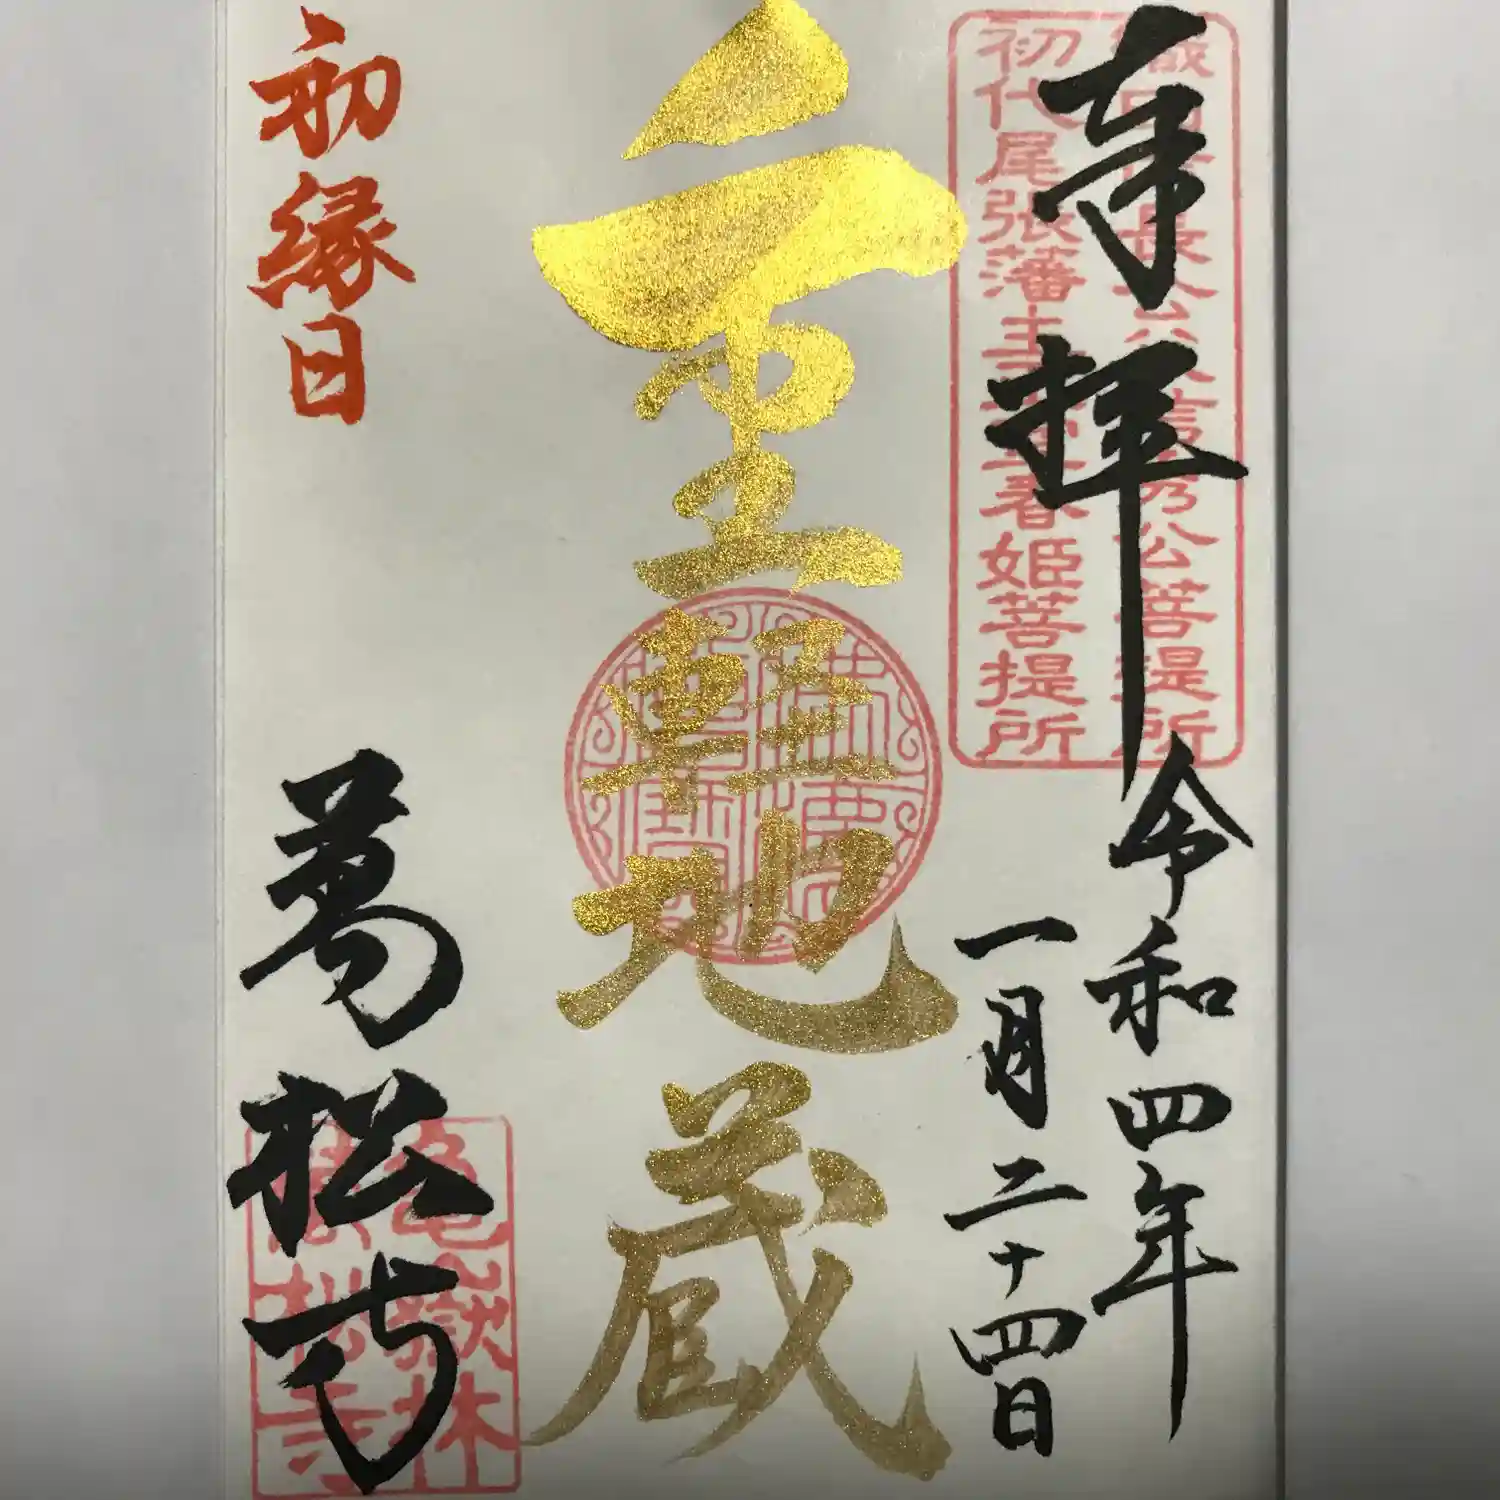 奉拝
織田信長公父信秀公菩提所
初代尾張藩主正室春姫菩提所
令和四年
一月二十四日
重軽地蔵
初縁日
萬松寺
亀嶽林
萬松寺